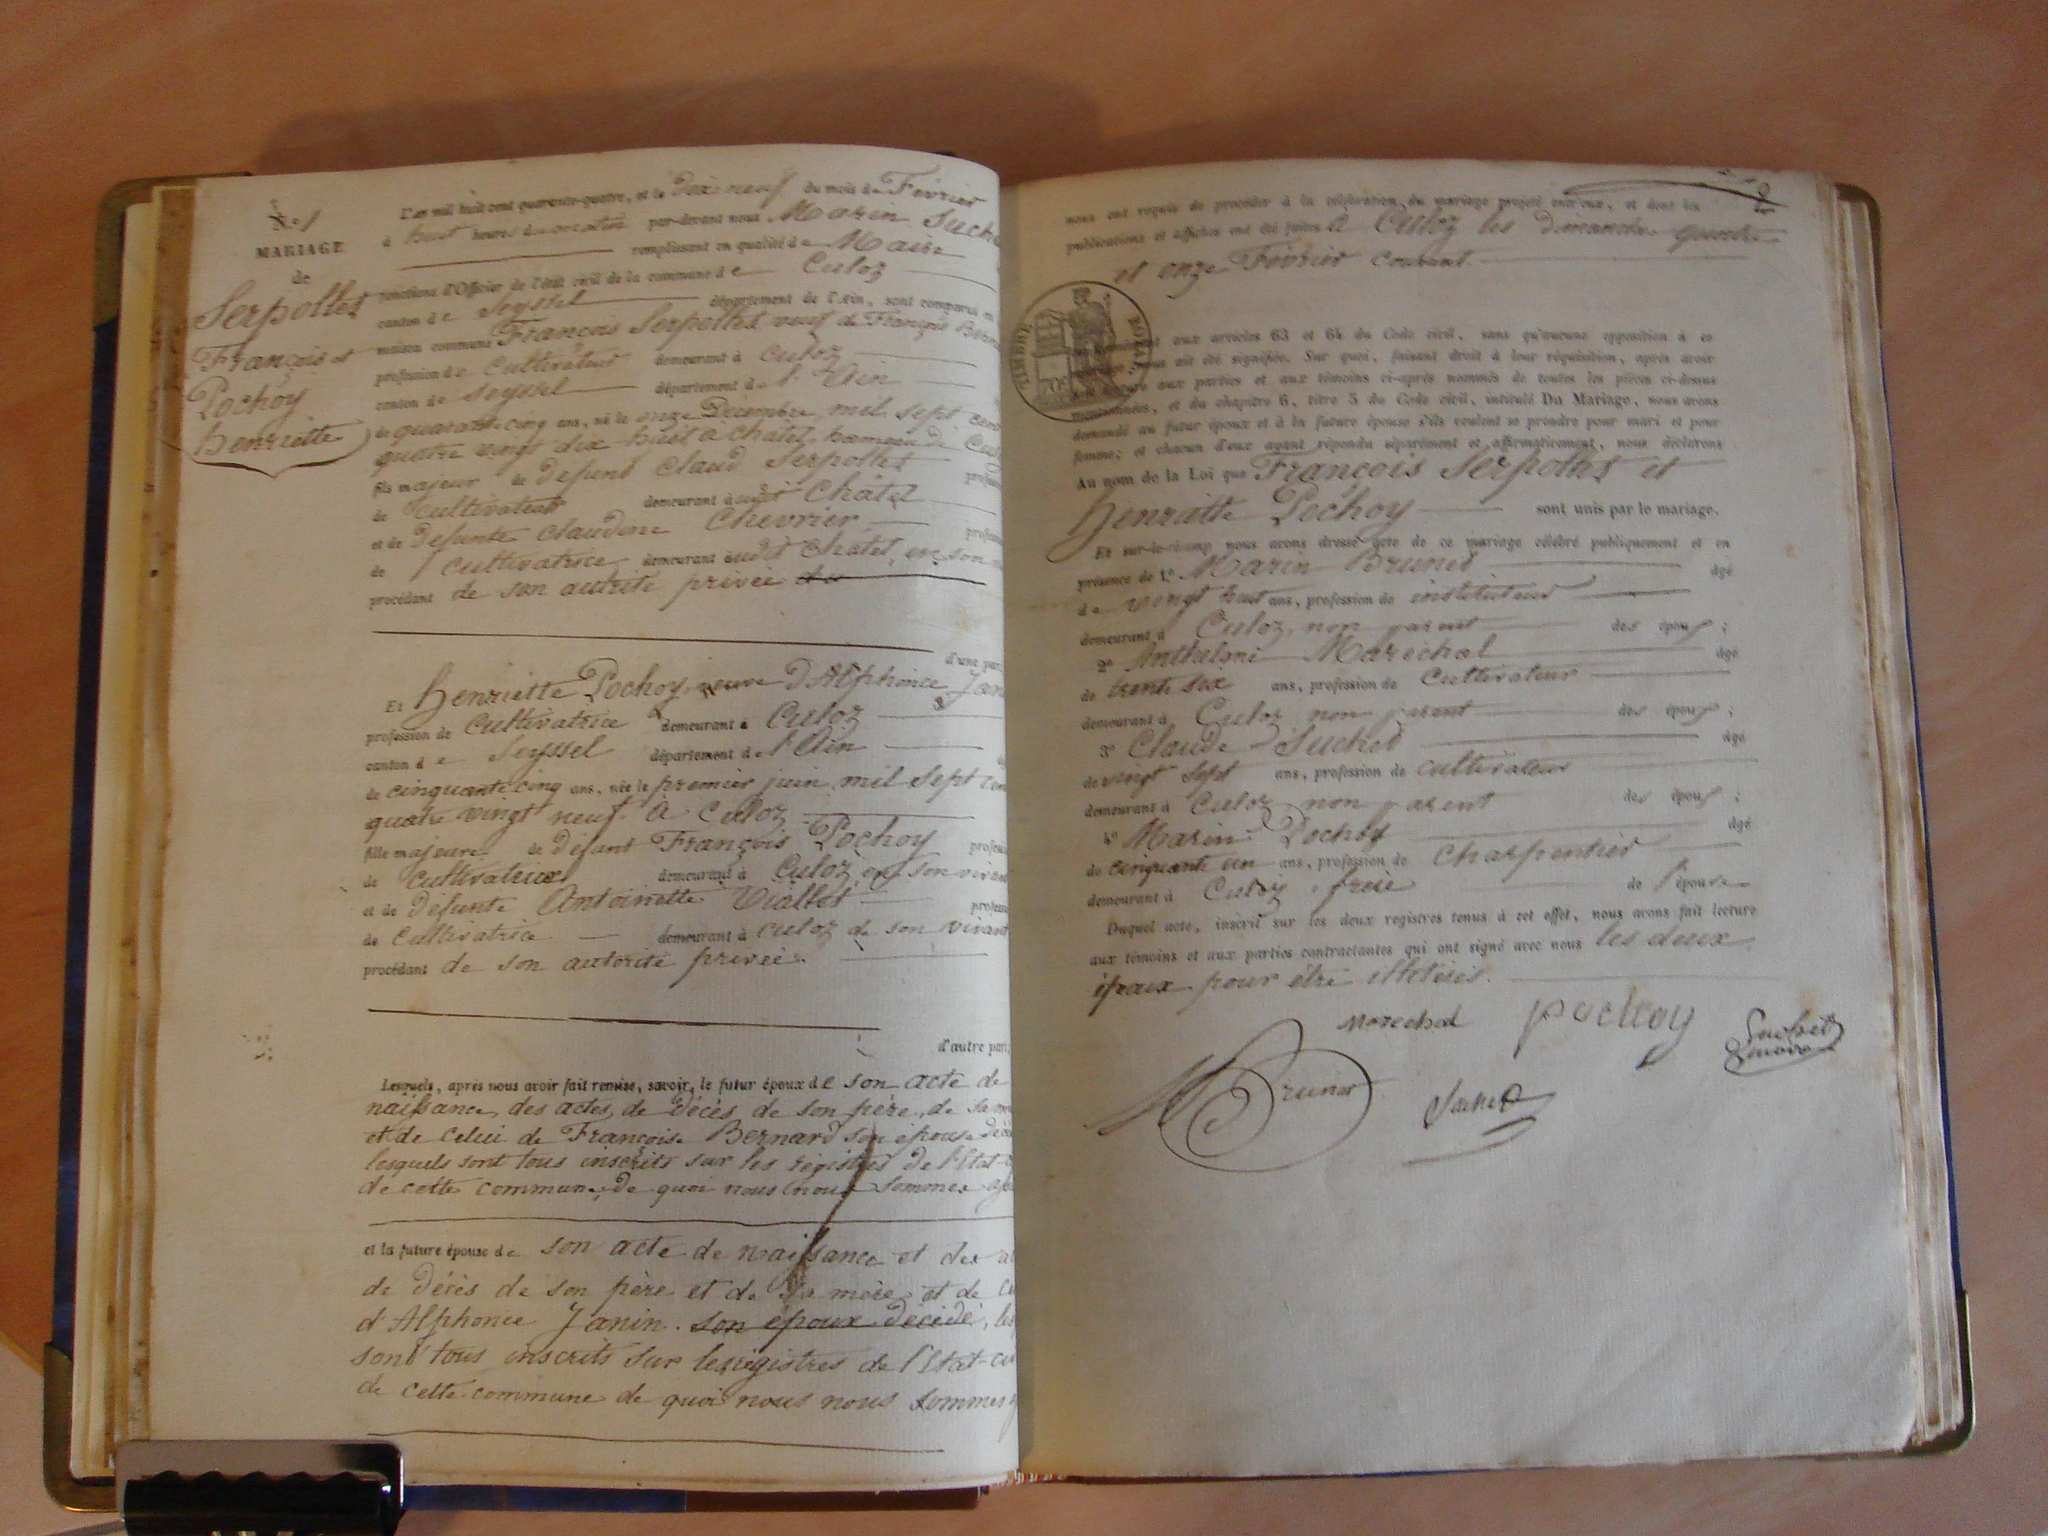 N° 1
MARIAGE
de
Serpollet
François et
Pochoy
henriette
L'an mil huit cent quarante-quatre, et le Dix neuf du mois de Février
à huit heures du matin par-devant nous Marin Suche
remplissant en qualité de Maire
fonctions d'Officier de l'état civil de la commune de Culoz
canton de Seyssel département de l'Ain, sont comparus en
maison commune François Serpollet veuf de Françoise Berna
profession de Cultivateur demeurant à Culoz
canton de Seyssel département de l'Ain
de quarante cinq ans, né le onze Décembre mil sept cent
quatre vingt dix huit à chatel hameau de Culoz
fils majeur de defunt Claud Serpollet profess
de Cultivateur demeurant à udit Châtel
et de Defunte Claudine Chevrier professi
de cultivatrice demeurant audit Chatel, en son
procédant de son autrité privée
d'une par
Et henriette Pochoy, veuve D'Alphonce Jan
profession de cultivatrice demeurant à Culoz
canton de Seyssel département de l'Ain
de cinquante cinq ans, née le premier juin mil sept cent
quatre vingt neuf à culoz
fille majeure de défunt François Pochoy profess
de Cultivatrice demeurant à Culoz en son vivant
et de defunte Antoinette Viallet professi
de cultivatrice demeurant à culoz de son vivant
procédant de son autorité privée.
d'autre part,
Lesquels, après nous avoir fait remise, savoir, le futur époux de son acte de
naissance, des actes de décès de son père, de sa m
et de celui de Françoise Bernard son épouse décé
lesquels sont tous inscrits sur les régistres de l'Etat-c
de cette commune, de quoi nous nous sommes ass
et la future épouse de son acte de naissance et des a
de décès de son père et de sa mère et de ce
d'Alphonce Janin son époux décédé, les
sont tous inscrits sur les régistres de l'Etat-civ
de cette commune de quoi nous nous sommes
nous ont requis de procéder à la célébration du mariage projeté entr'eux, et dont les
publications et affiches ont été faites à Culoz les dimanches quatre
et onze Février courant
TIMBRE ROYAL
aux articles 63 et 64 du Code civil, sans qu'aucune opposition à ce
nous ait été signifiée. Sur quoi, faisant droit à leur réquisition, après avoir
lecture aux parties et aux témoins ci-après nommés de toutes les pièces ci-dessus
mentionnées, et du chapitre 6, titre 5 du Code civil, intitulé Du Mariage, nous avons
demandé au futur époux et à la future épouse s'ils veulent se prendre pour mari et pour
femme; et chacun d'eux ayant répondu séparément et affirmativement, nous déclarons
Au nom de la Loi que François Serpollet et
henriette Pochoy sont unis par le mariage.
Et sur-le-champ nous avons dressé acte de ce mariage célébré publiquement et en
présence de 1.° Marin Brunet âgé
de vingt huit ans, profession de instituteur
demeurant à Culoz, non parent des époux ;
2° Anthelme Maréchal âgé
de trente six ans, profession de cultivateur
demeurant à Culoz non parent des époux ;
3° Claude Suchet âgé
de vingt sept ans, profession de cultivateur
demeurant à Culoz non parent des époux ;
4° Marin Pochoy âgé
de cinquante un ans, profession de Charpentier
demeurant à Culoz, frère de l'épouse
Duquel acte, inscrit sur les deux registres tenus à cet effet, nous avons fait lecture
aux témoins et aux parties contractantes qui ont signé avec nous les deux
époux pour être illitérés.
Marechal pochoy Suchet
MBrunet Suchet